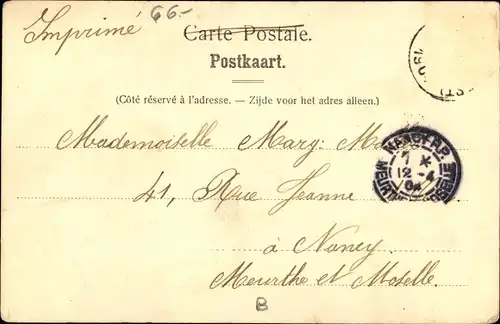 Imprimé
66.-
Carte Postale.
Postkaart.
(Côté réservé à l'adresse. — Zijde voor het adres alleen.)
Mademoiselle Mary
41, Rue Jeanne
à Nancy
Meurthe et Moselle.
NANCY
7 *
12 - 4
04
MEURTHE MOSELLE
B